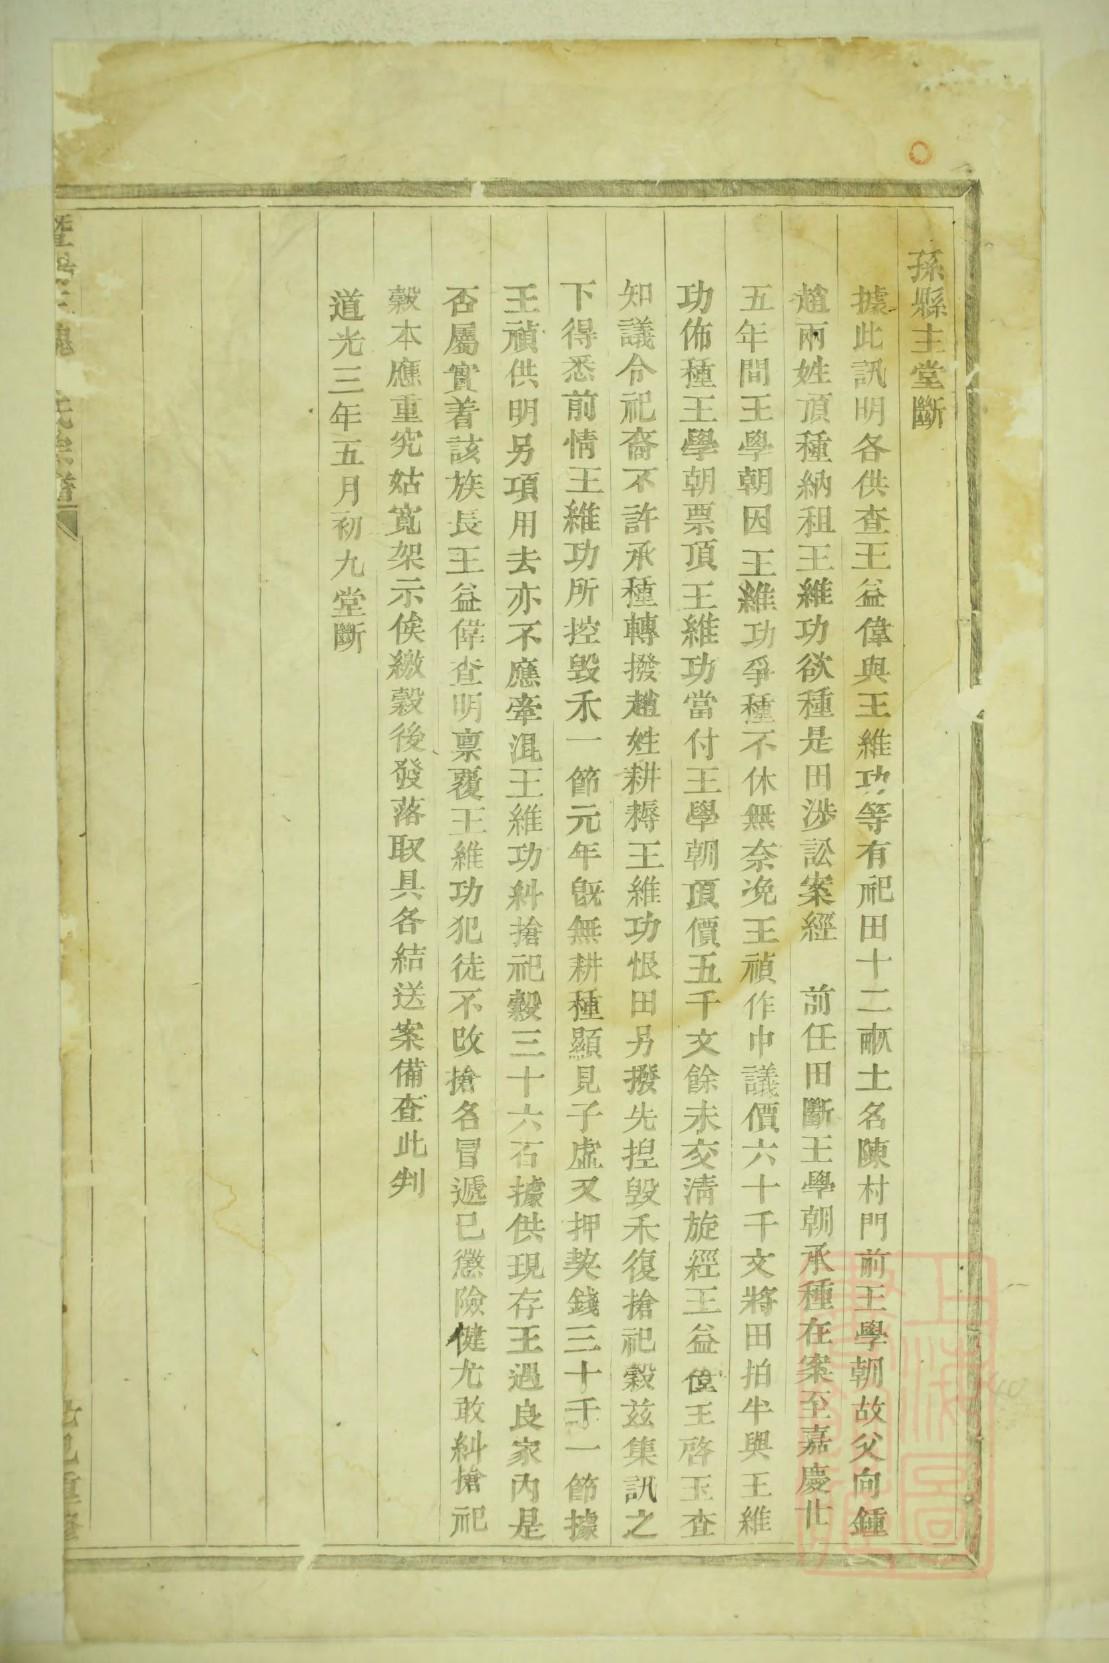 孫縣主堂斷
據此訊明各供查王益偉與王維功等有祀田十二畝土名陳村門前王學朝故父向鍾
趙兩姓頂種納租王維功欲種是田涉訟案經 前任田斷王學朝承種在案至嘉慶廿
五年間王學朝因王維功爭種不休無奈浼王禎作中議價六十千文將田拍半與王維
功佈種王學朝票頂王維功當付王學朝頂價五千文餘未交清旋經王益偉王啓玉查
知議令祀裔不許承種轉撥趙姓耕耨王維功恨田另撥先揑毀禾復搶祀穀茲集訊之
下得悉前情王維功所控毀禾一節元年旣無耕種顯見子虛又押契錢三十千一節據
王禎供明另項用去亦不應牽混王維功糾搶祀穀三十六石據供現存王遇良家內是
否屬實着該族長王益偉查明稟覆王維功犯徒不改搶名冒遞已懲險健尤敢糾搶祀
穀本應重究姑寬架示俟繳穀後發落取具各結送案備查此判
道光三年五月初九堂斷